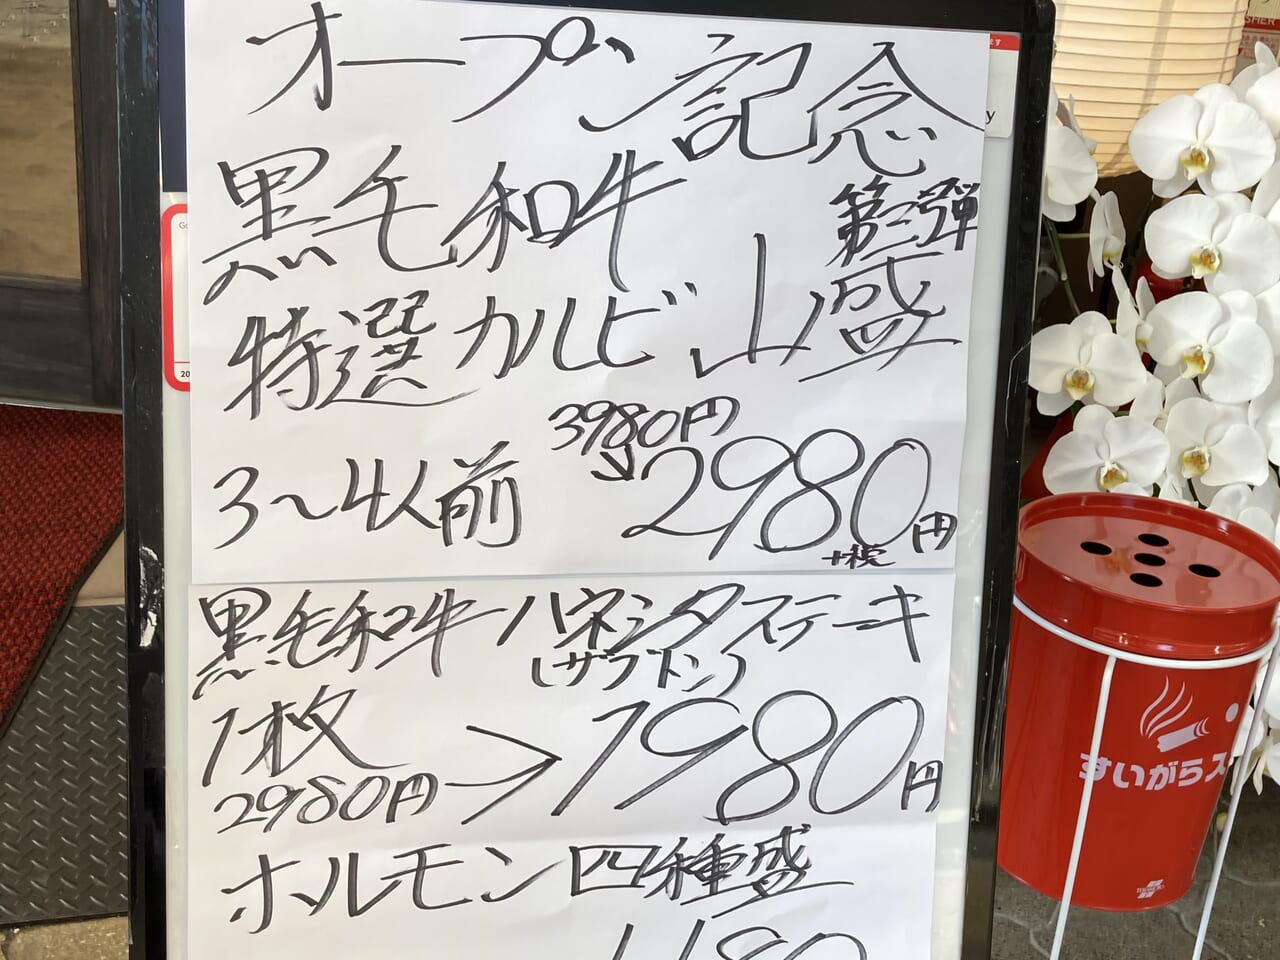 オープン記念
第三弾
黒毛和牛
特選カルビ山盛
3980円
3〜4人前 2980円
+税
黒毛和牛ハネシタステーキ
(ザブトン)
1枚
2980円→1980円
ホルモン四種盛
すいがらス